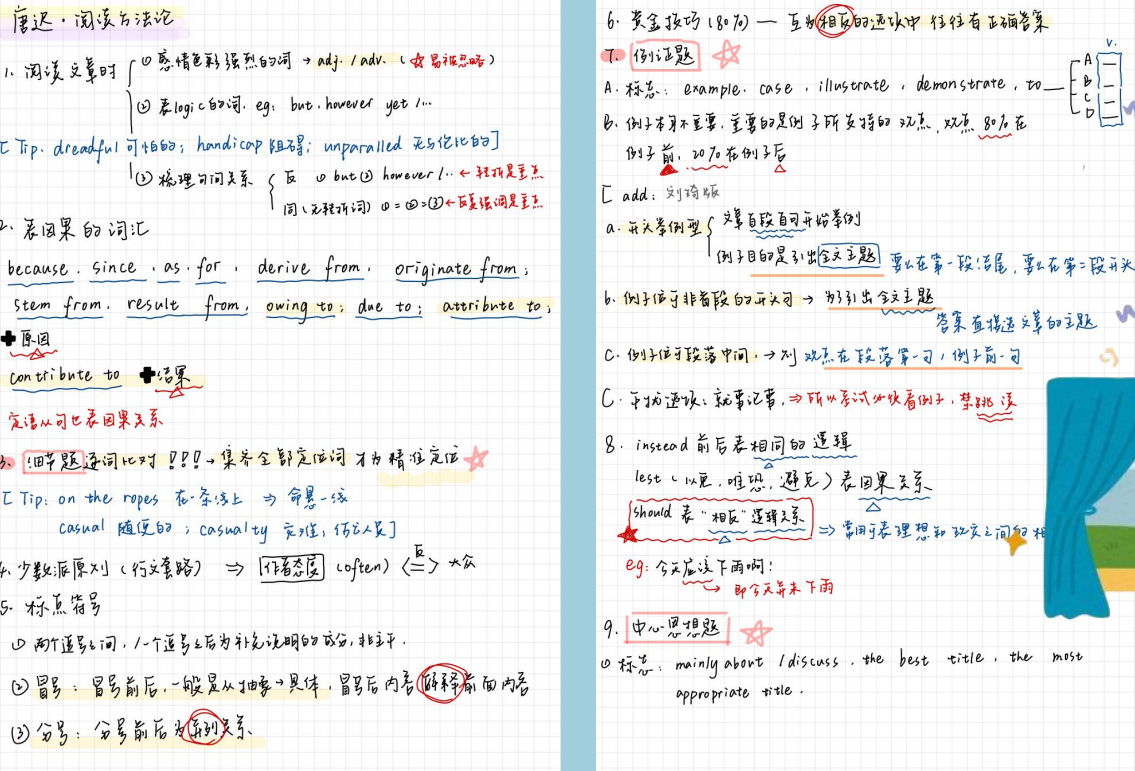 唐迟·阅读方法论
1. 阅读文章时 ① 感情色彩强烈的词 → adj. / adv. (☆易被忽略)
② 表logic的词. eg: but. however yet /...
[ Tip. dreadful 可怕的; handicap 阻碍; unparalled 无与伦比的]
③ 梳理句间关系 反 ① but ② however /.. ← 转折是重点
同 (无转折词) ① = ② = ③ ← 反复强调是重点
2. 表因果的词汇
because. since. as. for. derive from. originate from;
stem from. result from. owing to; due to; attribute to;
+ 原因
contribute to + 结果
定语从句也表因果关系
3. 细节题 逐词比对!!! → 集齐全部定位词 才为精准定位
[ Tip: on the ropes 在一条绳上 ⇒ 命悬一线
casual 随便的; casualty 灾难, 伤亡人员]
4. 少数派原则 (行文套路) ⇒ 作者态度 (often) <反=> 大众
5. 标点符号
① 两个逗号之间, / 一个逗号之后为补充说明的成分, 非主干.
② 冒号: 冒号前后, 一般是从抽象→具体, 冒号后内容解释前面内容
③ 分号: 分号前后为并列关系.
6. 黄金技巧 (80%) — 互为相反的选项中往往有正确答案
7. 例证题
A. 标志: example. case. illustrate. demonstrate. to — A B C D V.
B. 例子本身不重要, 重要的是例子所支持的观点, 观点 80% 在
例子前, 20% 在例子后
[ add: 刘琦版
a. 开头举例型 文章首段首句开始举例
例子目的是引出全文主题 要么在第一段结尾, 要么在第二段开头
b. 例子位于非首段的开头句 → 为了引出全文主题
答案直接选文章的主题
C. 例子位于段落中间, → 则观点在段落第一句, 例子前一句
C. 干扰选项: 就事论事, ⇒ 所以考试勿收看例子, 禁跳读
8. instead 前后表相同的逻辑
lest (以免, 唯恐, 避免) 表因果关系
should 表"相反"逻辑关系 ⇒ 常用于表理想和现实之间的相
eg: 今天应该下雨啊!
→ 即今天并未下雨
9. 中心思想题
① 标志: mainly about / discuss. the best title. the most
appropriate title.